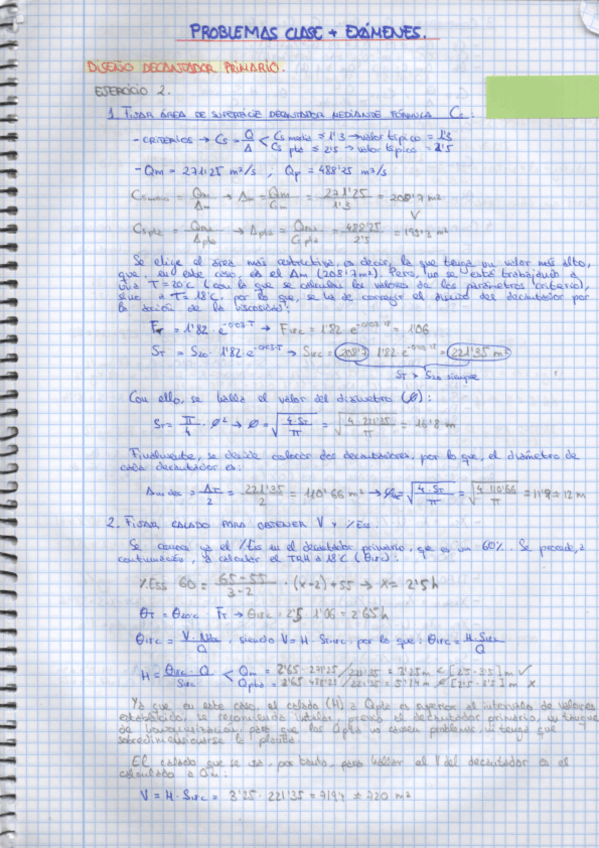 PROBLEMAS CLASE + EXÁMENES.
DISEÑO DECANTADOR PRIMARIO.
EJERCICIO 2.
1. FIJAR ÁREA DE SUPERFICIE DECANTADOR MEDIANTE FÓRMULA Cs:
- CRITERIOS → Cs = Q/A < Cs media ≤ 1'3 → valor típico = 1'3
Cs pta ≤ 2'5 → valor típico = 2'5
- Qm = 271'25 m³/s , Qp = 488'25 m³/s
Cs media = Qm/Am → Am = Qm/Cm = 271'25/1'3 = 208'7 m²
Cs pta = Qpta/Apta → Apta = 488'25/2'5 = m²
Se elige el área más restrictiva, es decir, la que tenga un valor más alto,
que, en este caso, es el Am (208'7m²). Pero, no se está trabajando a
T = 20°C (con lo que se calculan los valores de los parámetros (criterio),
sino a T = 18°C, por lo que, se ha de corregir el del decantador por
la acción de la viscosidad:
FT = 1'82 · e^-0'03·T → F18°C = 1'82 · e^-0'03·18 = 1'06
ST = S20 · 1'82 · e^-0'03·T → S18°C = 208'7 · 1'82 · e^-0'03·18 = 221'35 m²
ST > S20 siempre
Con ello, se halla el valor del diámetro (Ø):
ST = π/4 · Ø² → Ø = √(4·ST/π) = √(4·221'35/π) = 16'8 m
Finalmente, se decide colocar dos decantadores, por lo que, el diámetro de
cada decantador es:
= AT/2 = 221'35/2 = 110'66 m² → = √(4·ST/π) = √(4·110'66/π) = 11'8 ≈ 12 m
2. FIJAR CALADO PARA OBTENER V Y %Ess.
Se conoce ya el %Ess en el decantador primario, que es un 60%. Se procede, a
continuación, a calcular el TRH a 18°C (θ18°C):
%Ess 60 = 65-55/3-2 · (x-2) + 55 → x = 2'5 h
θT = θ20°C · FT → θ18°C = 2'5 · 1'06 = 2'65 h
θ18°C = /Q , siendo V = H · S18°C, por lo que: θ18°C = H·S18°C/Q
H = θ18°C · Q/S18°C < Qm = 2'65 · 271'25/221'35 = 3'25 m < [2'5-3'5] m ✓
Qpta = 2'65 · 488'25/221'35 = m < [2'5-3'5] m ✗
Ya que en este caso, el calado (H) a Qpta es superior al intervalo de valores
establecido, se recomienda instalar, previo al decantador primario, un tanque
de homogeneización para que los Qpta no causen problemas, ni tenga que
sobredimensionarse la planta.
El calado que se usa, por tanto, para hallar el V del decantador es el
calculado a Qm:
V = H · S18°C = 3'25 · 221'35 = 719'4 ≈ 720 m³